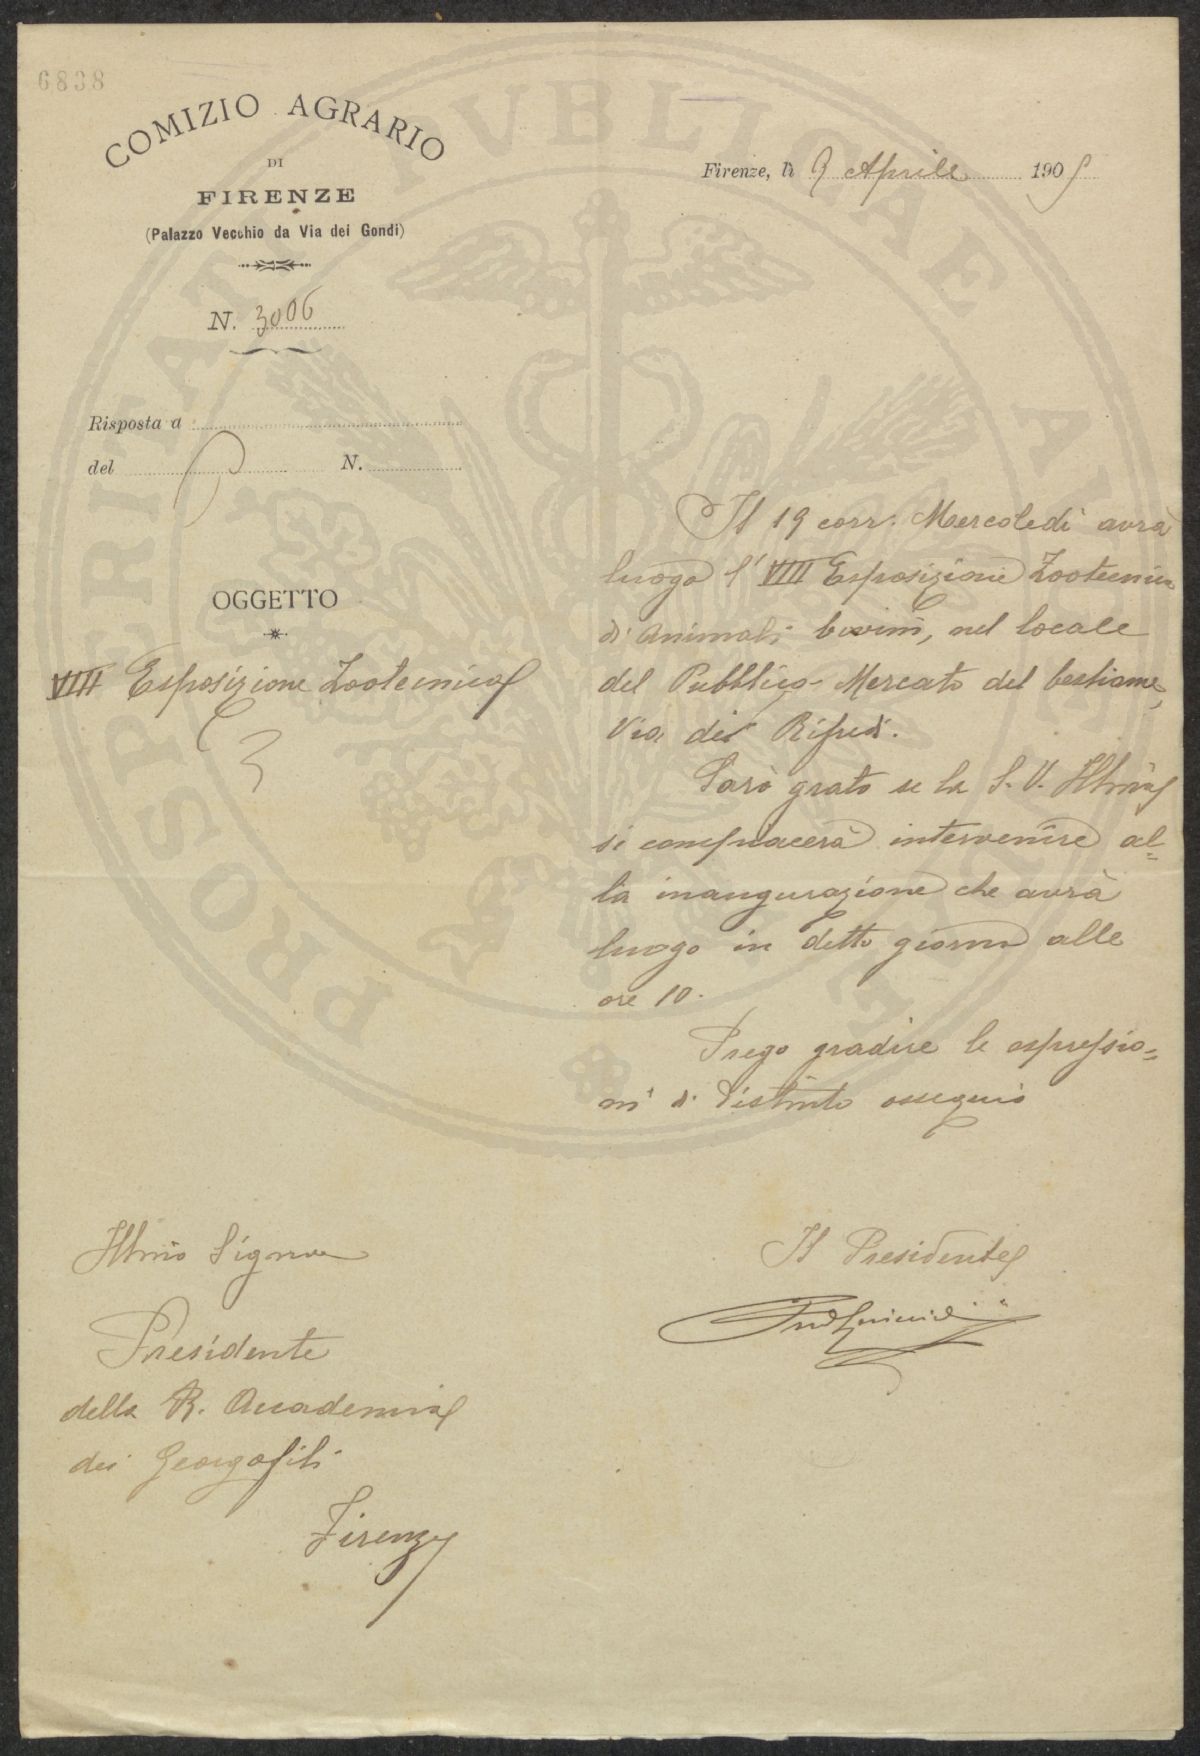 6838
COMIZIO AGRARIO
DI
FIRENZE
(Palazzo Vecchio da Via dei Gondi)
N. 3006
Risposta a
del N.
OGGETTO
VIII Esposizione Zootecnica
Firenze, li 9 Aprile 1905
Il 19 corr. Mercoledì avrà
luogo l'VIII Esposizione Zootecnica
di Animali bovini, nel locale
del Pubblico Mercato del bestiame,
Via dei Rifredi.
Sarò grato se la S. V. Illma
si compiacerà intervenire al=
la inaugurazione che avrà
luogo in detto giorno alle
ore 10.
Prego gradire le espressio=
ni di distinto ossequio
Il Presidente
Illmo Signore
Presidente
della R. Accademia
dei Georgofili
Firenze
PROSPERITATI PVBLICAE AVGENDAE